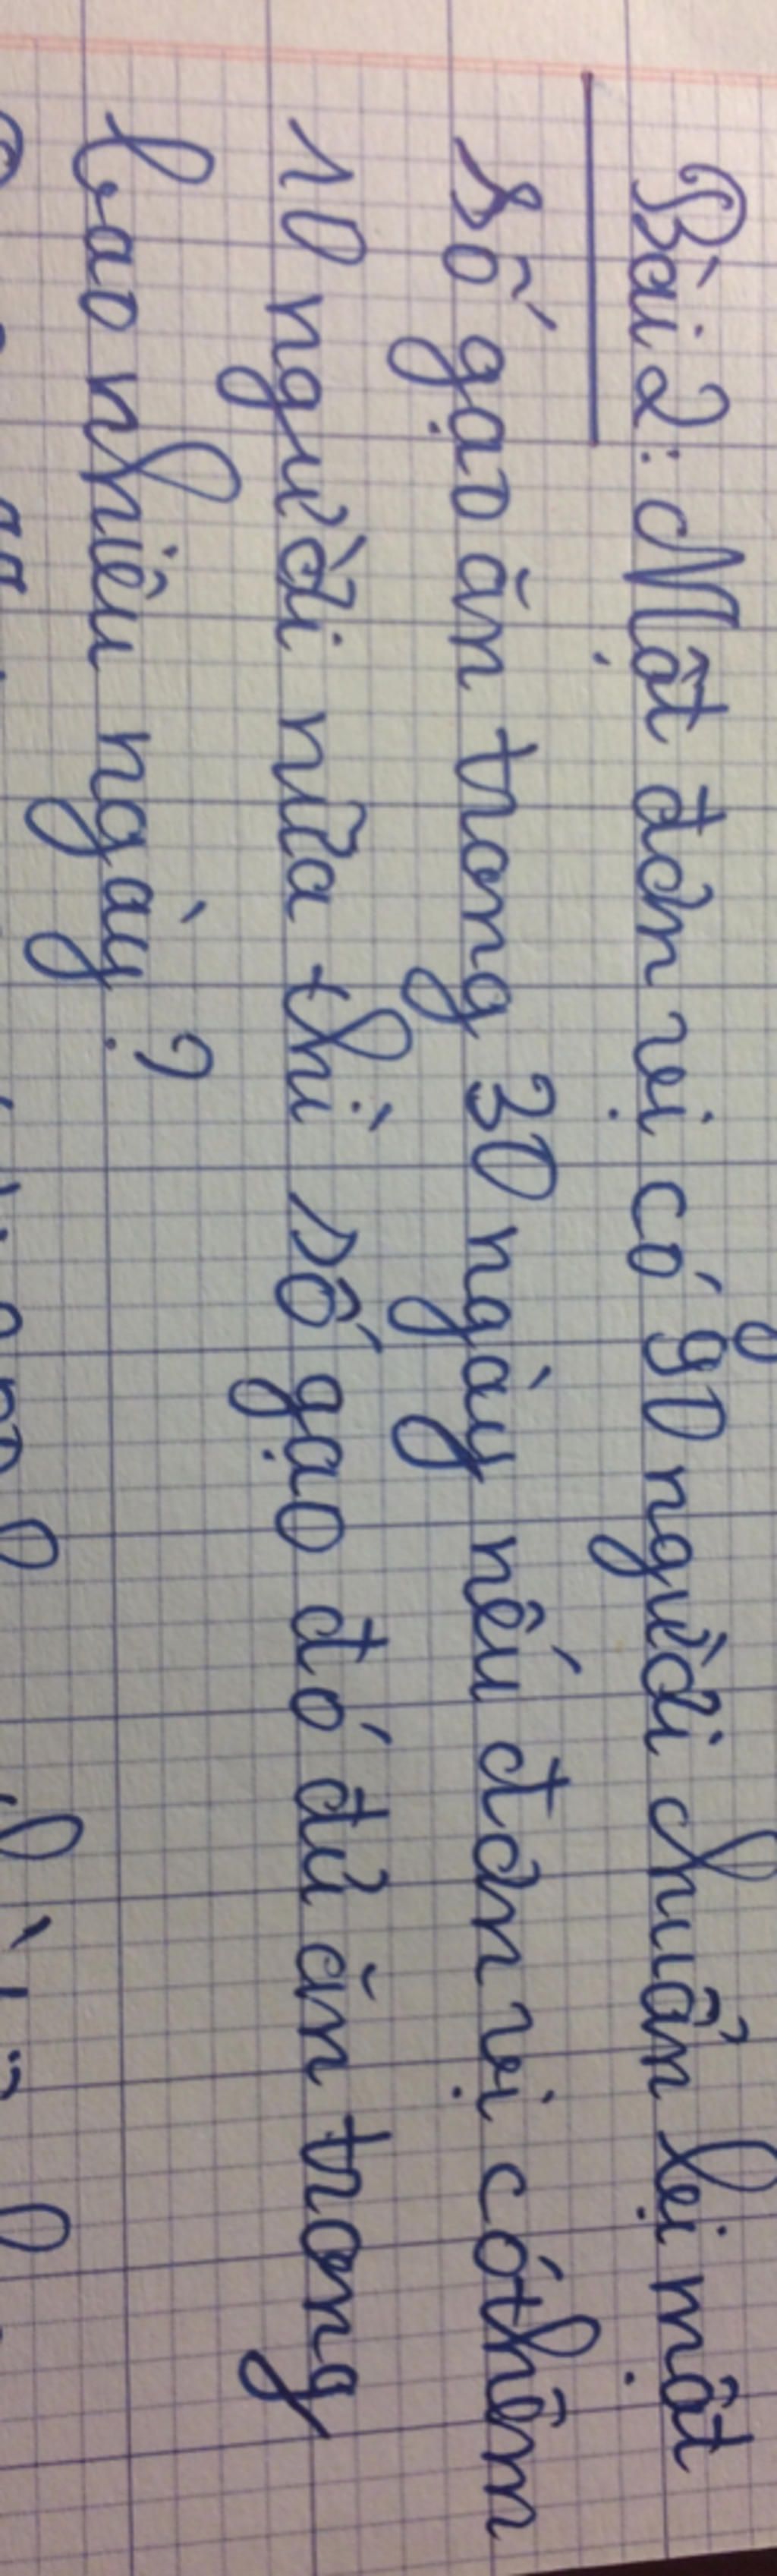 Bài 2: Một đơn vị có 90 người chuẩn bị một
số gạo ăn trong 30 ngày nếu đơn vị có thêm
10 người nữa thì số gạo đó đủ ăn trong
bao nhiêu ngày?